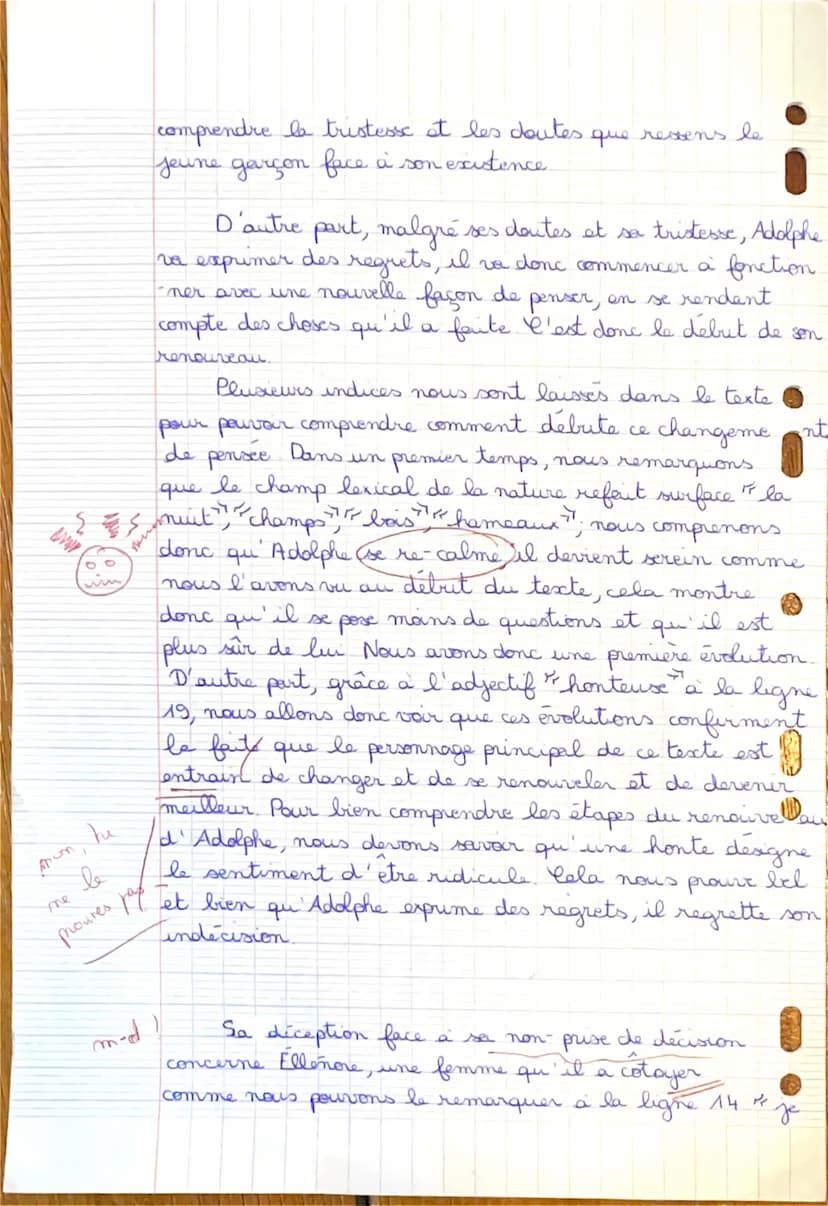 comprendre la tristesse et les doutes que ressens le
jeune garçon face à son existence.
D'autre part, malgré ses doutes et sa tristesse, Adolphe
va exprimer des regrets, il va donc commencer à fonction
-ner avec une nouvelle façon de penser, en se rendant
compte des choses qu'il a faite. C'est donc le début de son
renouveau.
Plusieurs indices nous sont laissés dans le texte
pour pouvoir comprendre comment débute ce changement
de pensée. Dans un premier temps, nous remarquons
que le champ lexical de la nature refait surface "la
nuit", "champs", "bois", "hameaux", nous comprenons
donc qu'Adolphe se re-calme, il devient serein comme
nous l'avons vu au début du texte, cela montre
donc qu'il se pose moins de questions et qu'il est
plus sûr de lui. Nous avons donc une première évolution.
D'autre part, grâce à l'adjectif "honteuse" à la ligne
19, nous allons donc voir que ces évolutions confirment
le faits que le personnage principal de ce texte est
entrain de changer et de se renouveler et de devenir
meilleur. Pour bien comprendre les étapes du renouveau
d'Adolphe, nous devons savoir qu'une honte désigne
le sentiment d'être ridicule. Cela nous prouve bel
et bien qu'Adolphe exprime des regrets, il regrette son
indécision.
non, tu
ne le
prouves pas
m-d !
Sa déception face à sa non-prise de décision
concerne Éllénore, une femme qu'il a côtoyer
comme nous pouvons le remarquer à la ligne 14 "je